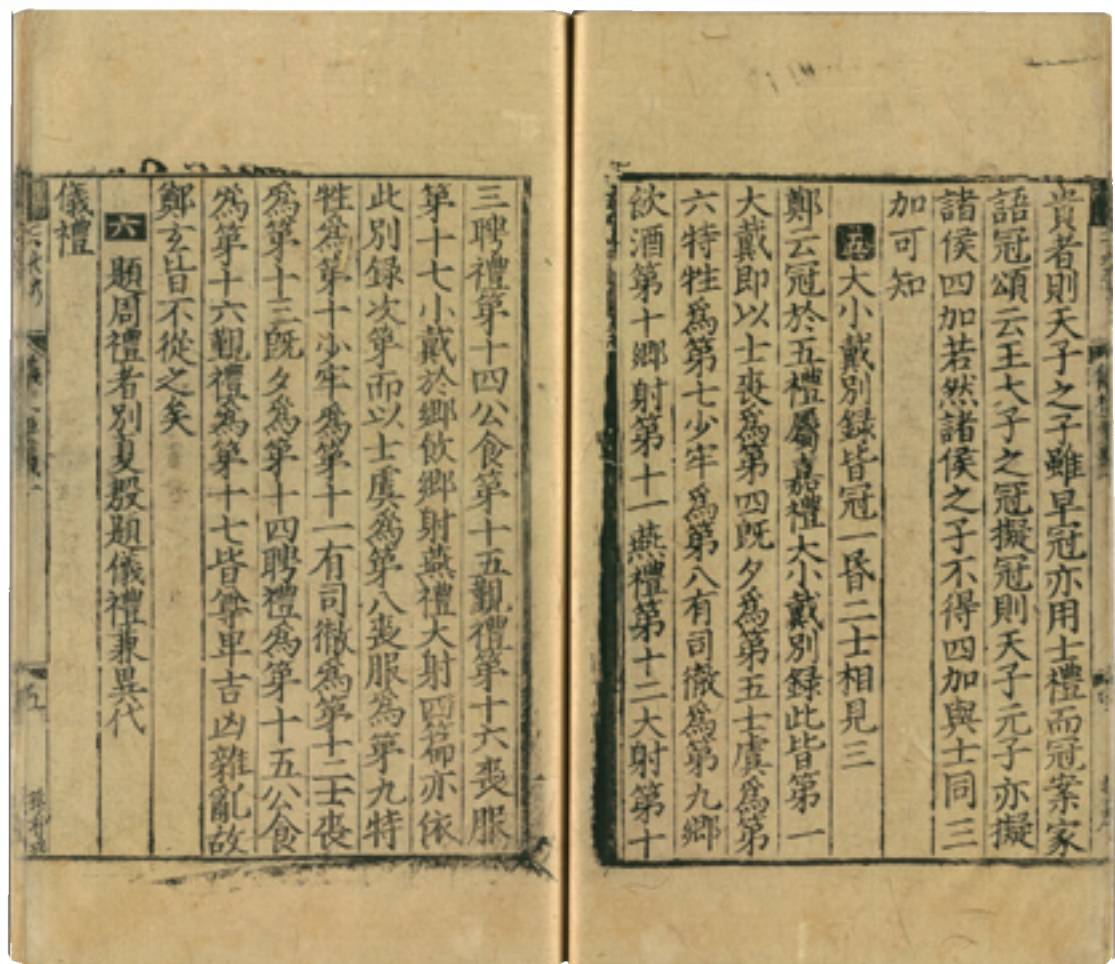 貴者則天子之子雖早冠亦用士禮而冠案家
語冠頌云王大子之冠擬冠則天子元子亦擬
諸侯四加若然諸侯之子不得四加與士同三
加可知
五大小戴別録皆冠一昏二士相見三
鄭云冠於五禮屬嘉禮大小戴別録此皆第一
大戴即以士喪爲第四既夕爲第五士虞爲第
六特牲爲第七少牢爲第八有司徹爲第九鄉
飲酒第十鄉射第十一燕禮第十二大射第十
三聘禮第十四公食第十五覲禮第十六喪服
第十七小戴於鄉飲鄉射燕禮大射四篇亦依
此別録次第而以士虞爲第八喪服爲第九特
牲爲第十少牢爲第十一有司徹爲第十二士喪
爲第十三既夕爲第十四聘禮爲第十五公食
爲第十六覲禮爲第十七皆尊卑吉凶雜亂故
鄭玄皆不從之矣
六題周禮者別夏殷題儀禮兼異代
儀禮
五